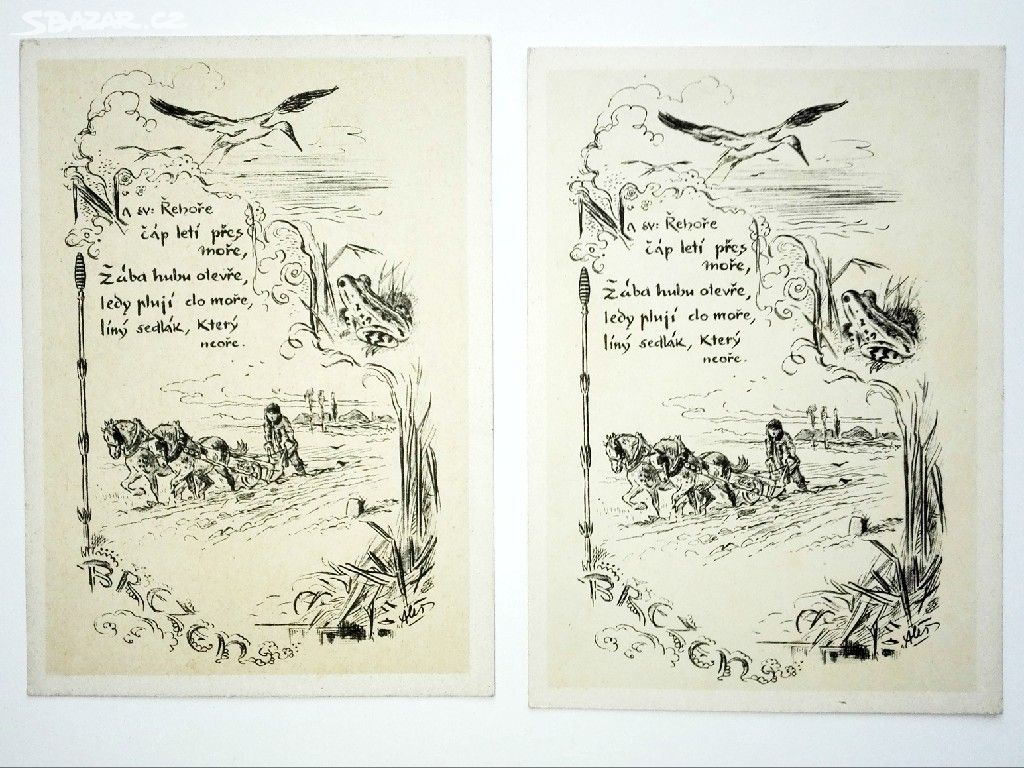 SBAZAR.CZ
Na sv: Řehoře
čáp letí přes
moře,
Žába hubu otevře,
ledy plují do moře,
líný sedlák, Který
neoře.
BŘEZEN
Aleš
Na sv: Řehoře
čáp letí přes
moře,
Žába hubu otevře,
ledy plují do moře,
líný sedlák, Který
neoře.
BŘEZEN
Aleš